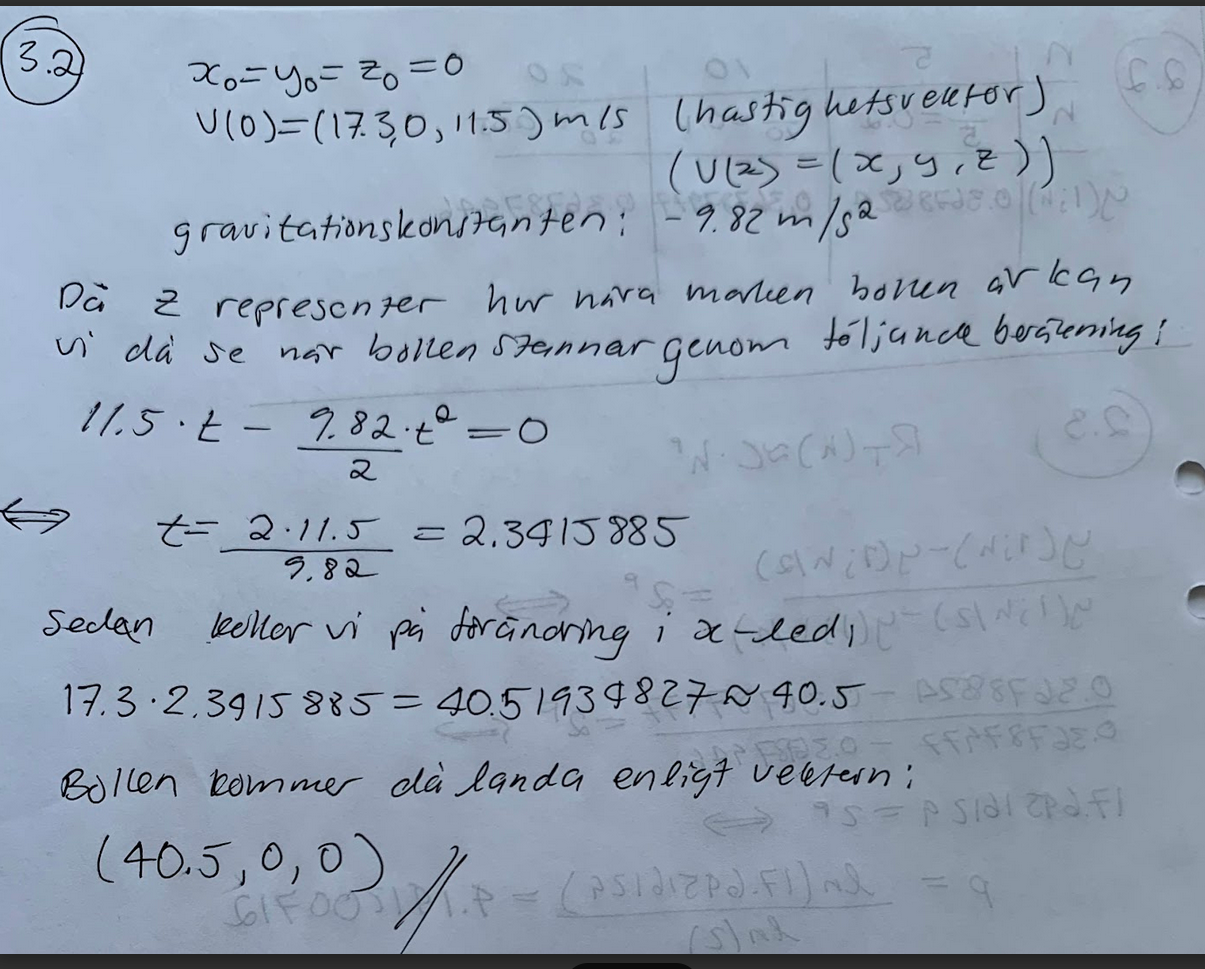 3.2
x₀=y₀=z₀=0
V(0)=(17.3,0,11.5) m/s (hastighetsvektor)
(V(z) =(x,y,z))
gravitationskonstanten: -9.82 m/s²
Då z representer hur nära marken bollen är kan
vi då se när bollen stannar genom följande beräkning:
11.5 · t - 9.82·t²/2 = 0
⟺ t= 2·11.5/9.82 = 2.3415885
Sedan kollar vi på förändring i x-led,
17.3·2.3415885=40.51934827≈40.5
Bollen kommer då landa enligt vektorn:
(40.5,0,0) //